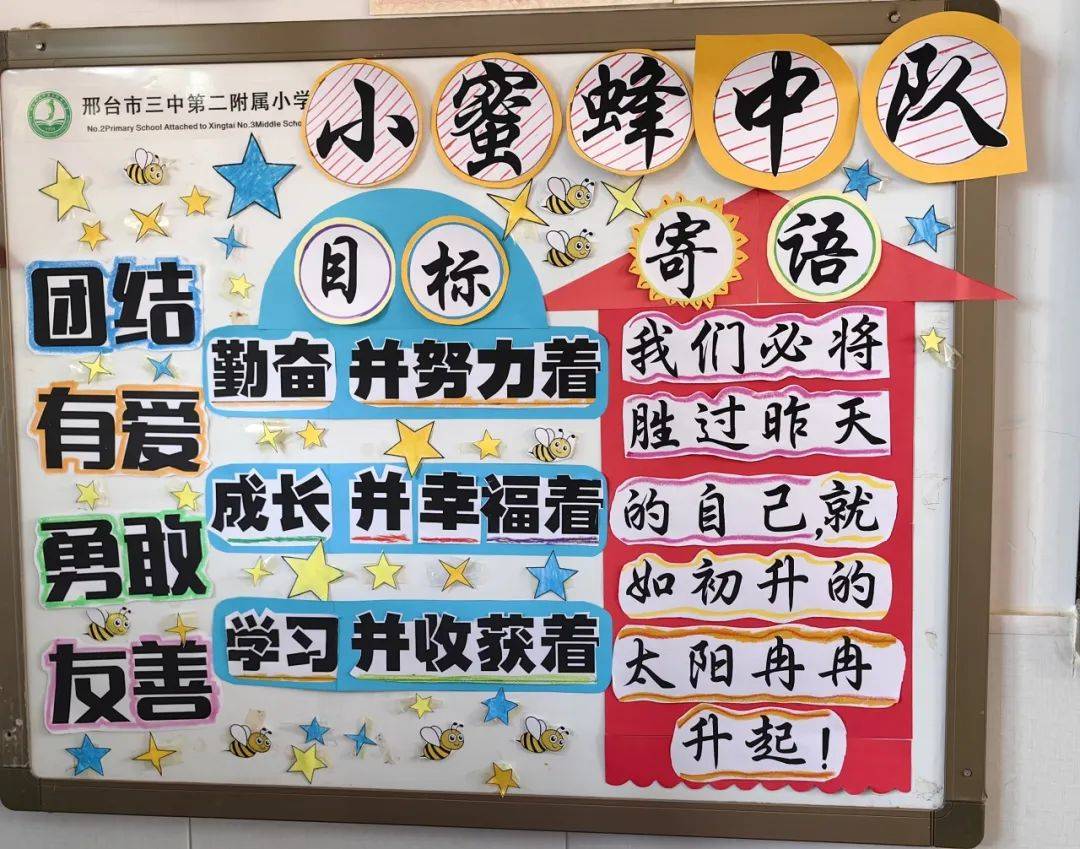 邢台市三中第二附属小学
No.2Primary School Attached to Xingtai No.3Middle
小蜜蜂中队
团结
有爱
勇敢
友善
目标
勤奋并努力着
成长并幸福着
学习并收获着
寄语
我们必将
胜过昨天
的自己,就
如初升的
太阳冉冉
升起！